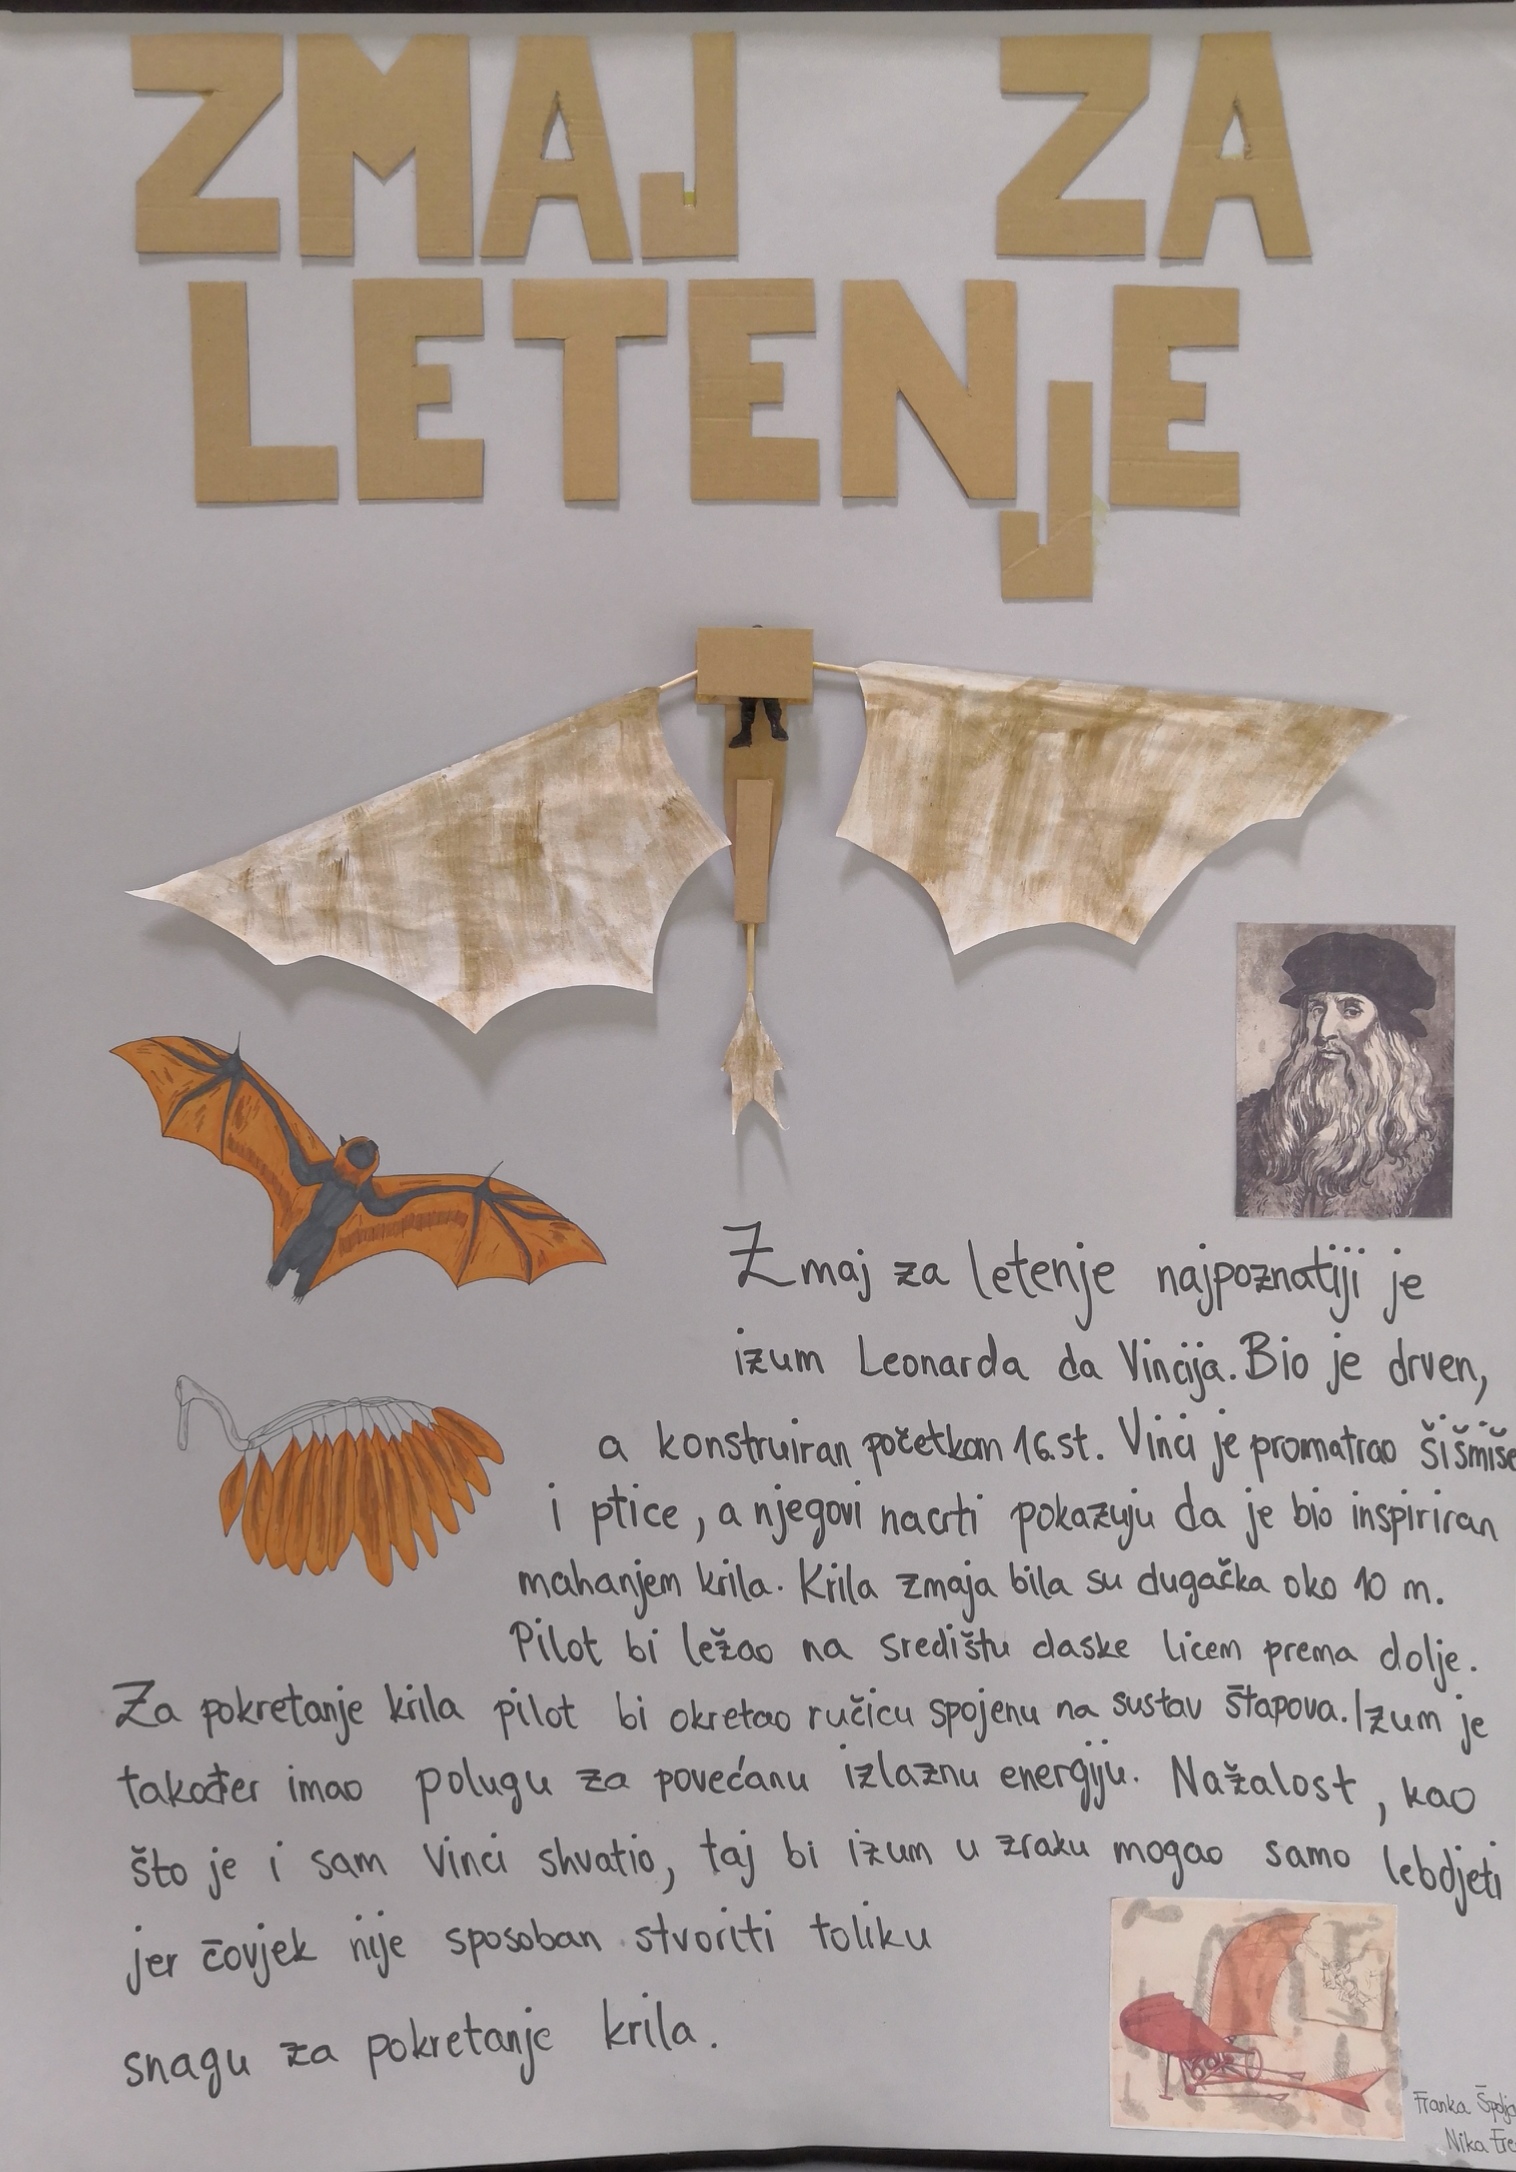 ZMAJ ZA
LETENJE
Zmaj za letenje najpoznatiji je
izum Leonarda da Vincija. Bio je drven,
a konstruiran početkom 16.st. Vinci je promatrao šišmiše
i ptice, a njegovi nacrti pokazuju da je bio inspiriran
mahanjem krila. Krila zmaja bila su dugačka oko 10 m.
Pilot bi ležao na središtu daske licem prema dolje.
Za pokretanje krila pilot bi okretao ručicu spojenu na sustav štapova. Izum je
također imao polugu za povećanu izlaznu energiju. Nažalost, kao
što je i sam Vinci shvatio, taj bi izum u zraku mogao samo lebdjeti
jer čovjek nije sposoban stvoriti toliku
snagu za pokretanje krila.
Franka
Nika